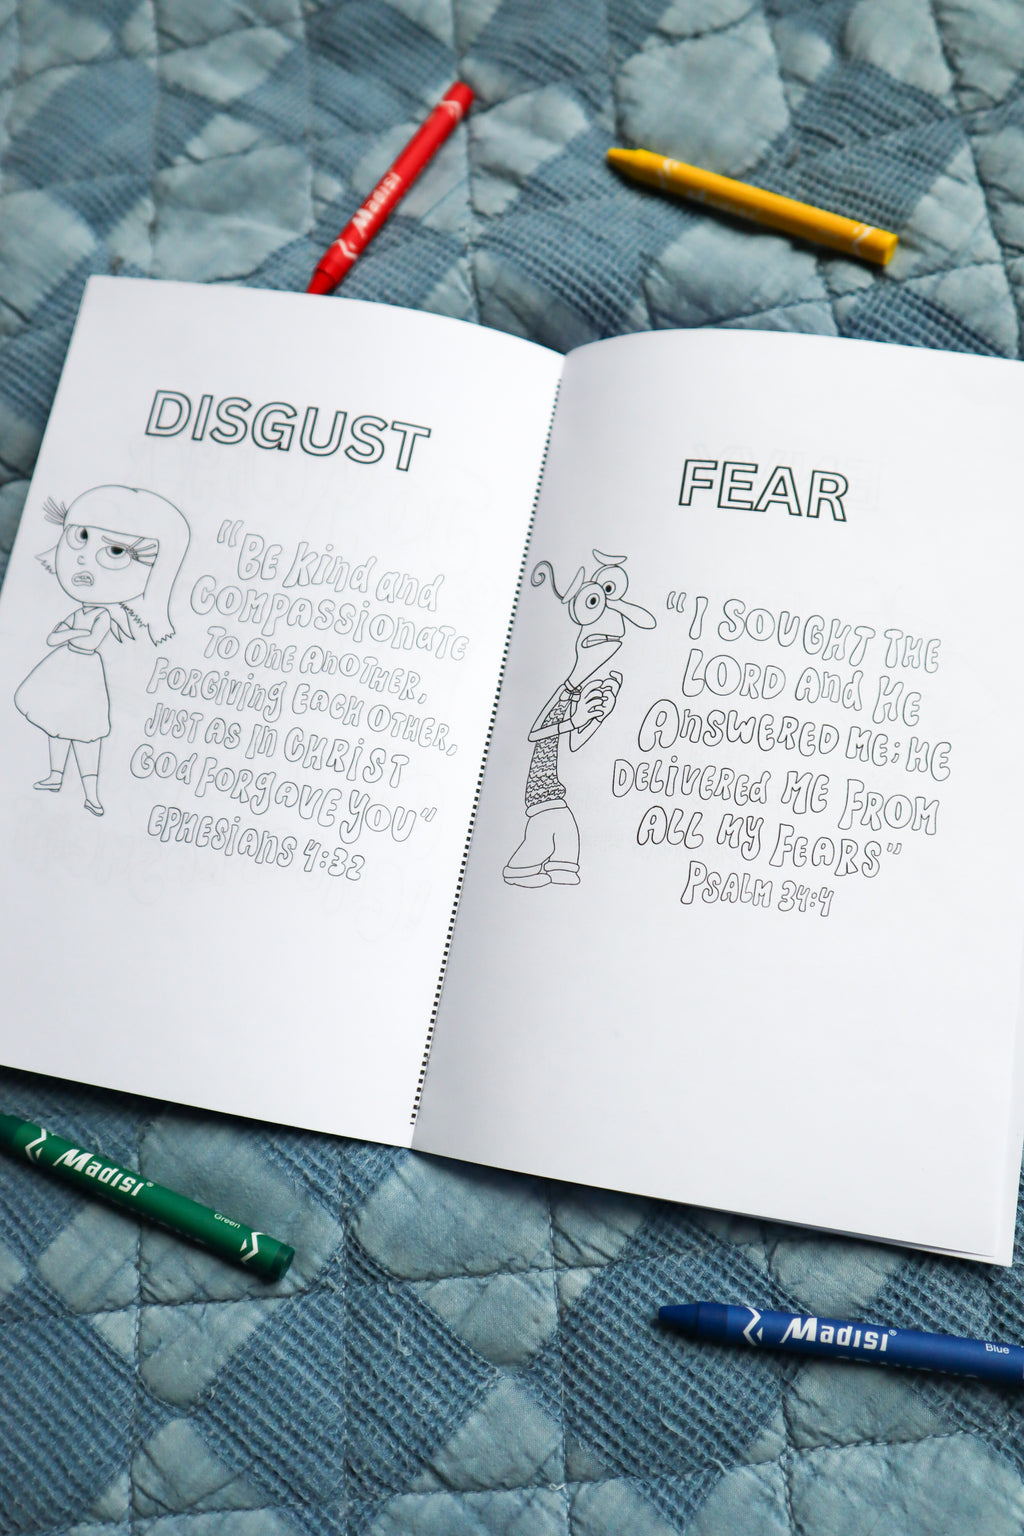 Madisi
DISGUST
"BE Kind and
COMPASSIONATE
TO ONE ANOTHER,
FORGIVING EACH OTHER,
JUST AS IN CHRIST
GOD FORGAVE YOU"
EPHESIANS 4:32
FEAR
"I SOUGHT THE
LORD AND HE
ANSWERED ME; HE
DELIVERED ME FROM
ALL MY FEARS"
PSALM 34:4
Madisi®
Green
Madisi®
Blue